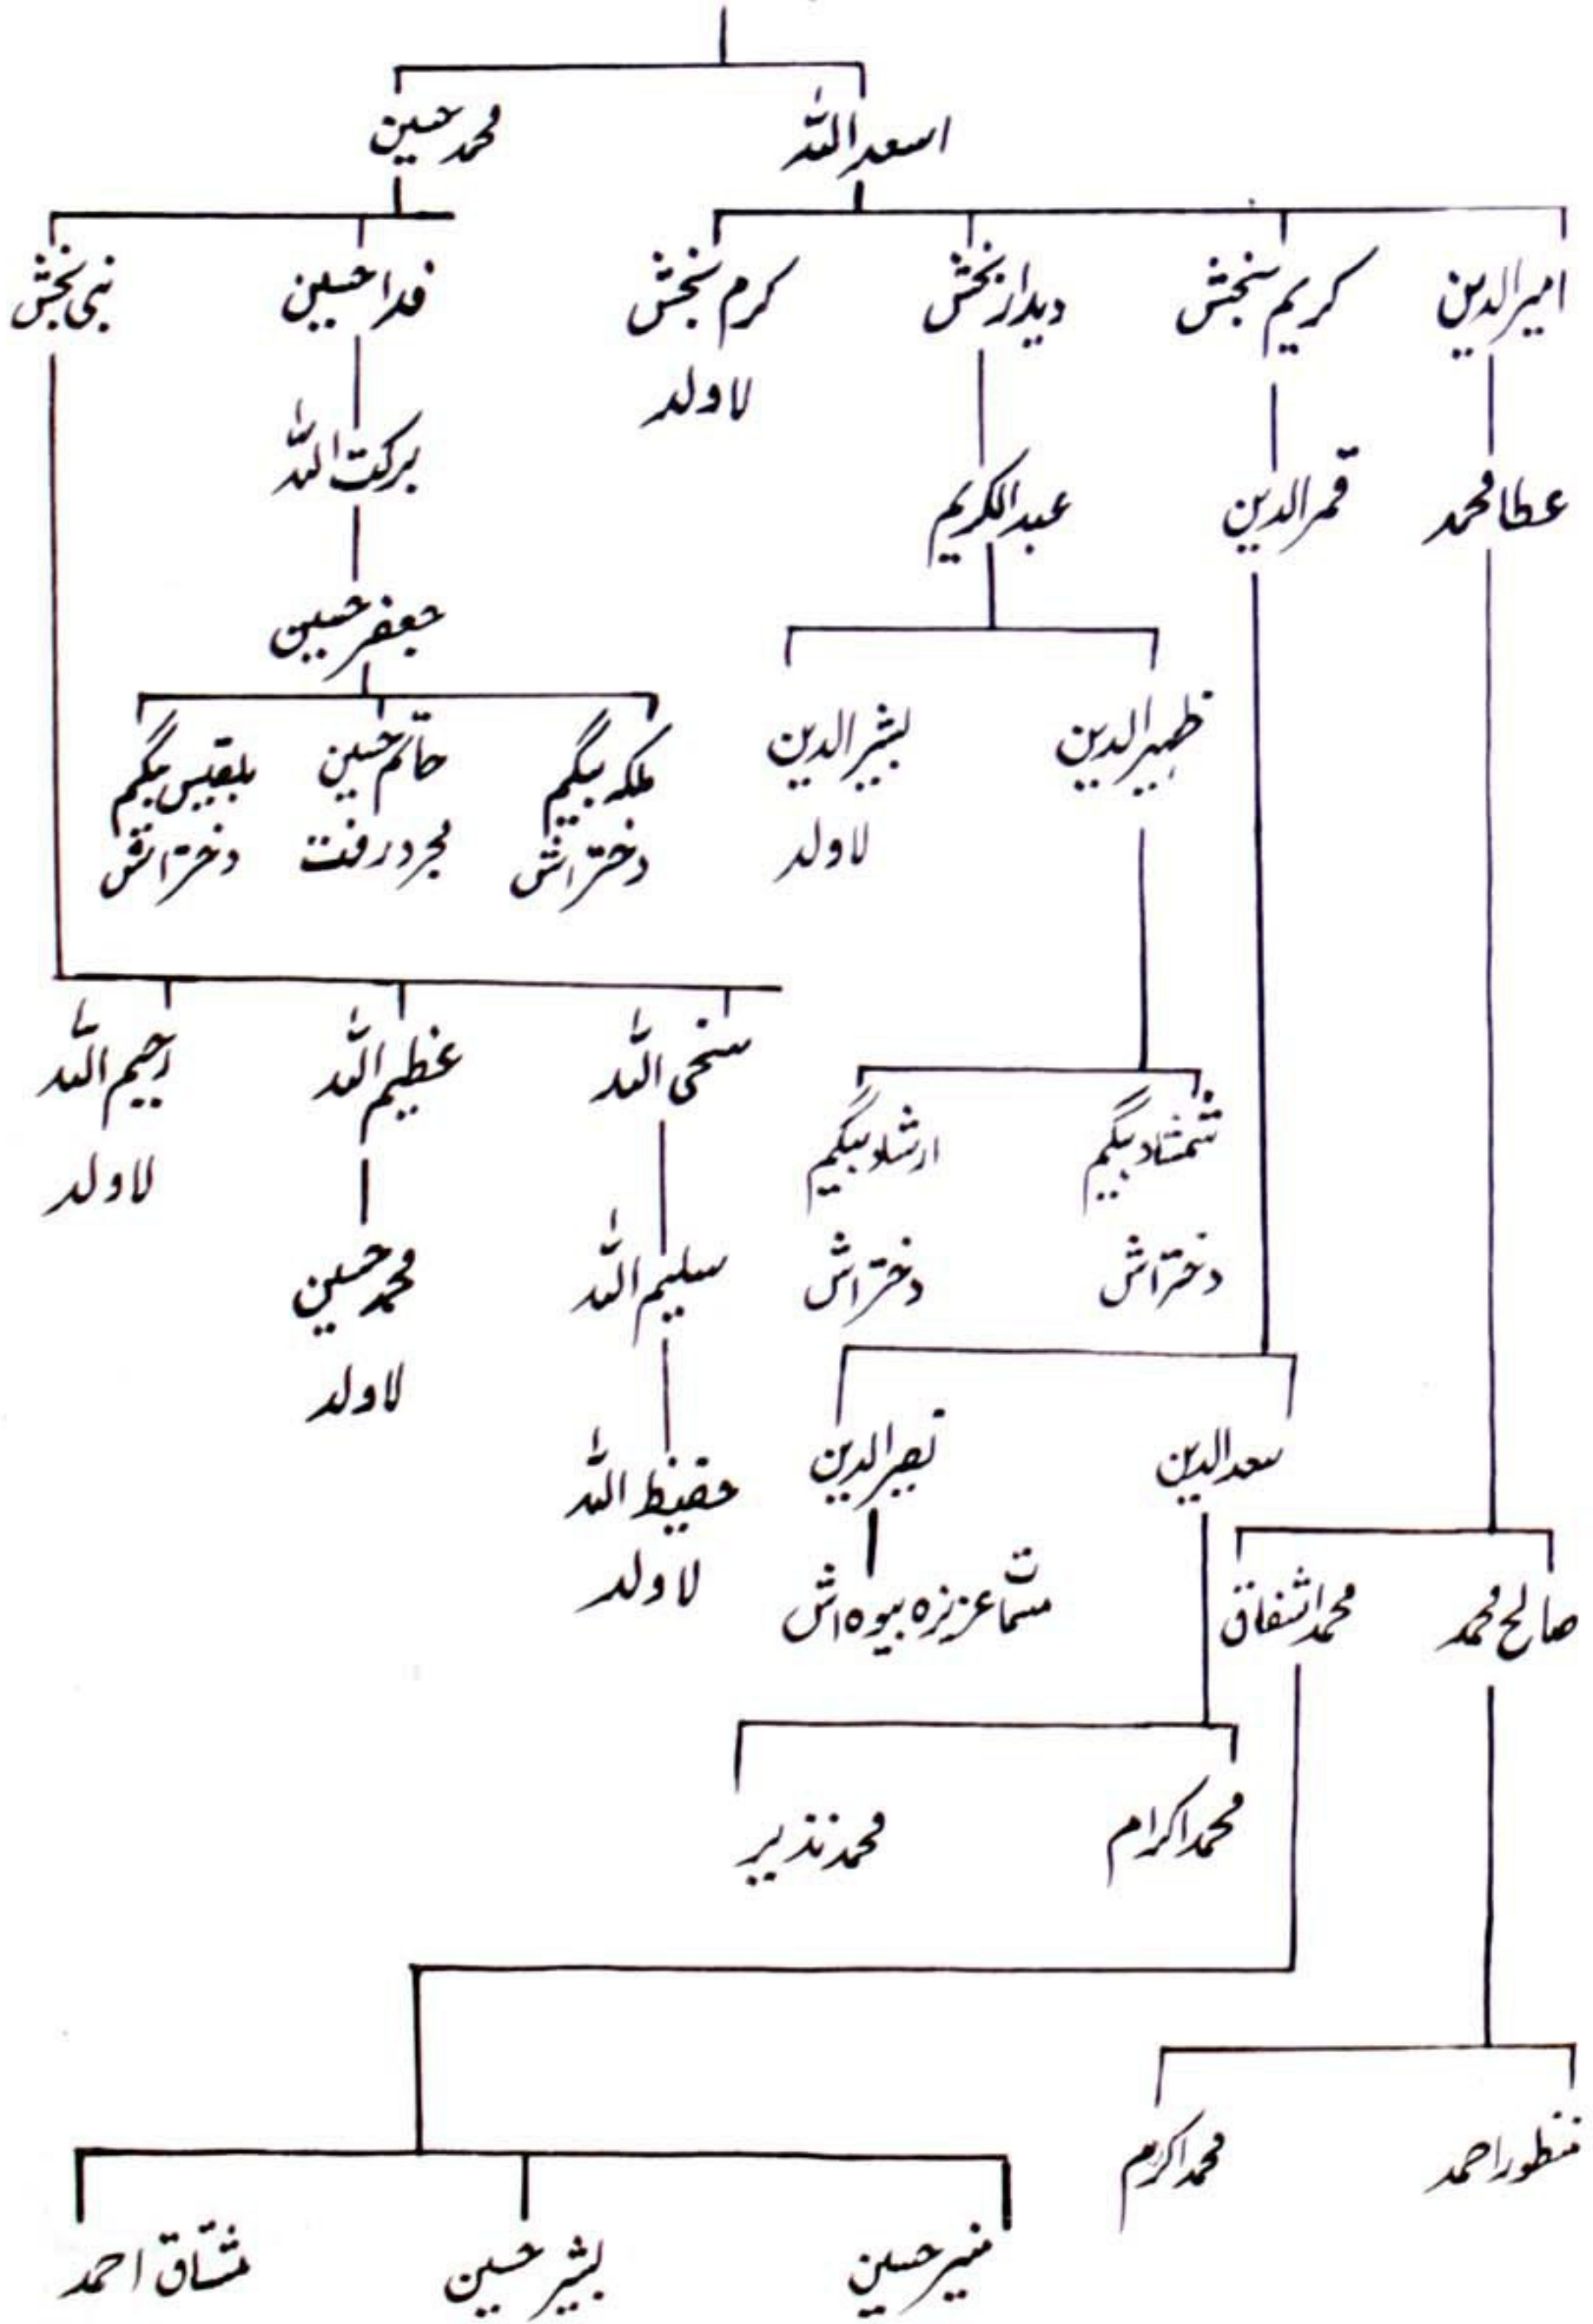 اسعد اللہ
محمد حسین
امیر الدین
کریم بخش
دیدار بخش
کرم بخش
لاولد
فدا حسین
نبی بخش
عطا محمد
قمر الدین
عبد الکریم
برکت اللہ
جعفر حسین
ظہیر الدین
بشیر الدین
لاولد
ملکہ بیگم
دختر اش
حاتم حسین
مجرد رفت
بلقیس بیگم
دختر اش
سخی اللہ
عظیم اللہ
رحیم اللہ
لاولد
شمشاد بیگم
دختر اش
ارشاد بیگم
دختر اش
سلیم اللہ
محمد حسین
لاولد
سعد الدین
نصیر الدین
حفیظ اللہ
لاولد
مسماۃ عزیزہ بیوہ اش
صالح محمد
محمد اشفاق
محمد اکرام
محمد نذیر
منظور احمد
محمد اکرم
منیر حسین
بشیر حسین
مشتاق احمد